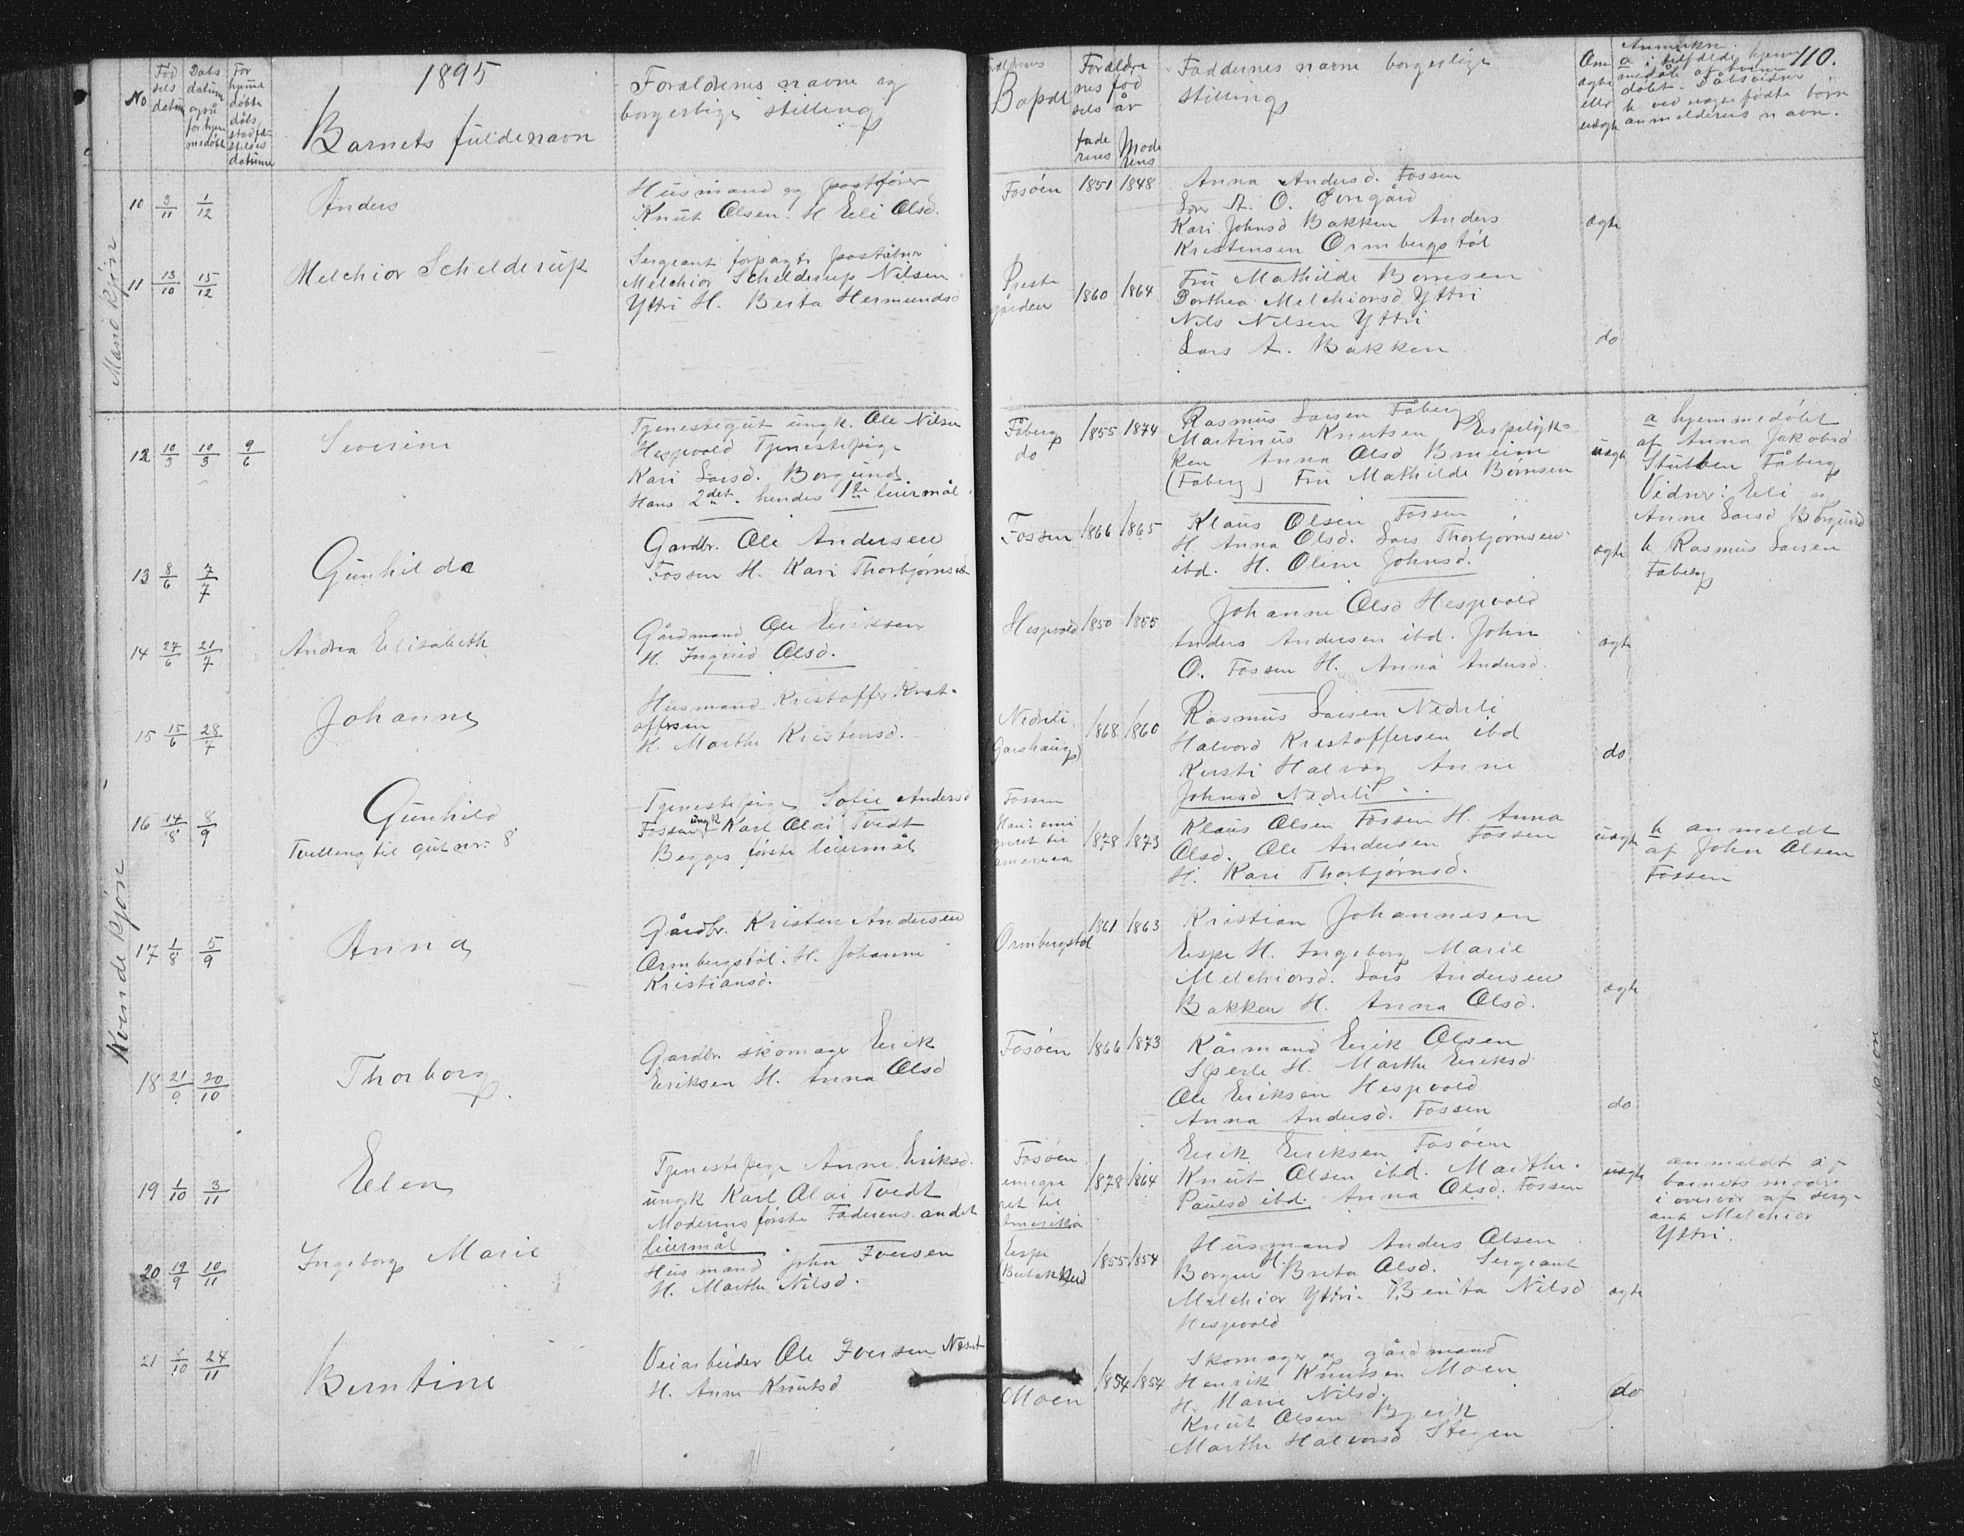 110.
1895
No
Fød
sels
datum
Dåbs
datum
også
for hjem
medøbt
For
hjemme
døbte
dåbs
stadfæ-
stelses
datum
Barnets fulde navn
Forældrenes navne og
borgerlige stilling
Bopæl
Foræld
nes fød
sels år
fade
rens
Mode
rens
Faddernes navne borgerlige
stilling
Om
ægte
eller
uægte
Anmærkn.
a i tilfælde hjemme
døbt. Dåbsvidner
b ved uægte fødte børn
anmelderens navn.
Mandkjøn
10 3/11 1/12
Anders
Husmand og postfører
Knut Olsen. H Eli Olsd.
Fosøen 1851 1848
Anna Andersd. Fossen
Kari Johnsd Bakken Anders
Kristensen Ormbergstøl
ægte
11 13/10 15/12
Melchior Schelderup
Sergeant forpagt. postaabner
Melchior Schelderup Nilsen
Yttri H. Berta Hermundsd
Preste
gården
1860 1864
Fru Mathilde Børnsen
Dorthea Melchiorsd Yttri
Nils Nilsen Yttri
Lars A. Bakken
do
Kvindekjøn
12 10/3 10/3 9/6
Severine
Tjenestegut ungk. Ole Nilsen
Hespvold Tjenestepige
Kari Larsd. Borgund.
Hans 2det. hendes 1ste leiermål.
Fåberg
do
1855 1874
Rasmus Larsen Fåberg
Martinus Knutsen Espeløk-
ken Anna Olsd Bmeim
(Fåberg) Fru Mathilde Børnsen
uægte
a hjemmedøbt
af Anna Jakobsd
Stubben Fåberg
Vidner: Eli og
Anne Larsd Borgund
b Rasmus Larsen
Fåberg
13 8/6 7/7
Gunhilda
Gardbr. Ole Andersen
Fossen H. Kari Thorbjørnsd
Fossen 1866 1865
Klaus Olsen Fossen
H. Anna Olsd. Lars Thorbjørnsen
ibd. H. Oline Johnsd.
ægte
14 27/6 21/7
Andrea Elisabeth
Gårdmand Ole Eriksen
H. Ingrid Olsd.
Hespvold 1850 1855
Johanne Olsd Hespvold
Anders Andersen ibd. John
O. Fossen H. Anna Andersd.
ægte
15 15/6 28/7
Johanne
Husmand Kristoffer Krist-
offersen
H. Marthe Kristensd.
Nedreli
Garshaug
1868 1860
Rasmus Larsen Nedreli
Halvord Kristoffersen ibd
Kersti Halvor Anne
Johnsd Nedreli
do
16 14/8 8/9
Gunhild
Tvilling til gut nr: 8
Tjenestepige Sofie Andersd
Fossen ungk Karl Olai Tvedt
Begges første leiermål
Fossen
Han: emi
greret til
america
1878 1873
Klaus Olsen Fossen H. Anna
Olsd. Ole Andersen Fossen
H. Kari Thorbjørnsd.
uægte
b anmeldt
af John Olsen
Fossen
17 1/8 5/9
Anna
Gårdbr. Kristen Andersen
Ormbergstøl. H. Johanne
Kristiansd.
Ormbergstøl
1861 1863
Kristian Johannesen
Espe H. Ingeborg Marie
Melchiorsd. Lars Andersen
Bakken H. Anna Olsd.
ægte
18 21/9 20/10
Thorborg
Gardbr. skomager Erik
Eriksen H. Anna Olsd
Fosøen 1866 1873
Kårmand Erik Olsen
Sperle H. Marthe Eriksd
Ole Eriksen Hespvold
Anna Andersd. Fossen
do
19 1/10 3/11
Elen
Tjenestepige Anne Eriksd.
ungk Karl Olai Tvedt
Moderens første Faderens andet
leiermål
Fosøen
emigre
ret til
Amerika
1878 1864
Erik Eriksen Fosøen
Knut Olsen ibd. Marthe
Paulsd ibd. Anna Olsd. Fossen
uægte
anmeldt af
barnets moder
i overvær af serg-
ant Melchior
Yttri.
20 19/9 10/11
Ingeborg Marie
Husmand John Iversen
H. Marthe Nilsd.
Espe
1855 1854
Husmand Anders Olsen
Borgen H. Brita Olsd. Sergeant
Melchior Yttri. Berita Nilsd
Hespvold
ægte
21 5/10 24/11
Berntine
Veiarbeider Ole Iversen Næset
H. Anne Knutsd
Moen
1854 1854
Skomager og gårdmand
Henrik Knutsen Moen
H. Marie Nilsd.
Knut Olsen Bjerk
Marthe Halvorsd Stegen
do